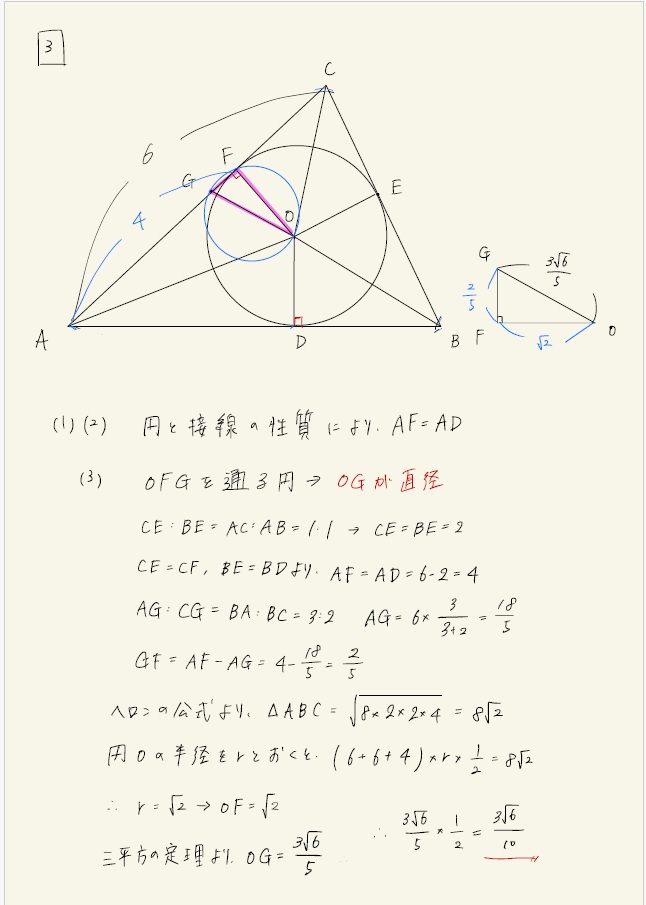 3
C
6
F
G
E
4
O
G
3√6/5
2/5
A
D
B
F
√2
O
(1)(2) 円と接線の性質により. AF=AD
(3) OFGを通る円→OGが直径
CE:BE=AC:AB=1:1 → CE=BE=2
CE=CF, BE=BDより. AF=AD=6-2=4
AG:CG=BA:BC=3:2 AG=6×3/(3+2)=18/5
GF=AF-AG=4-18/5=2/5
ヘロンの公式より, △ABC=√(8×2×2×4)=8√2
円Oの半径をrとおくと. (6+6+4)×r×1/2=8√2
∴ r=√2→OF=√2
三平方の定理より. OG=3√6/5 ∴ 3√6/5×1/2=3√6/10